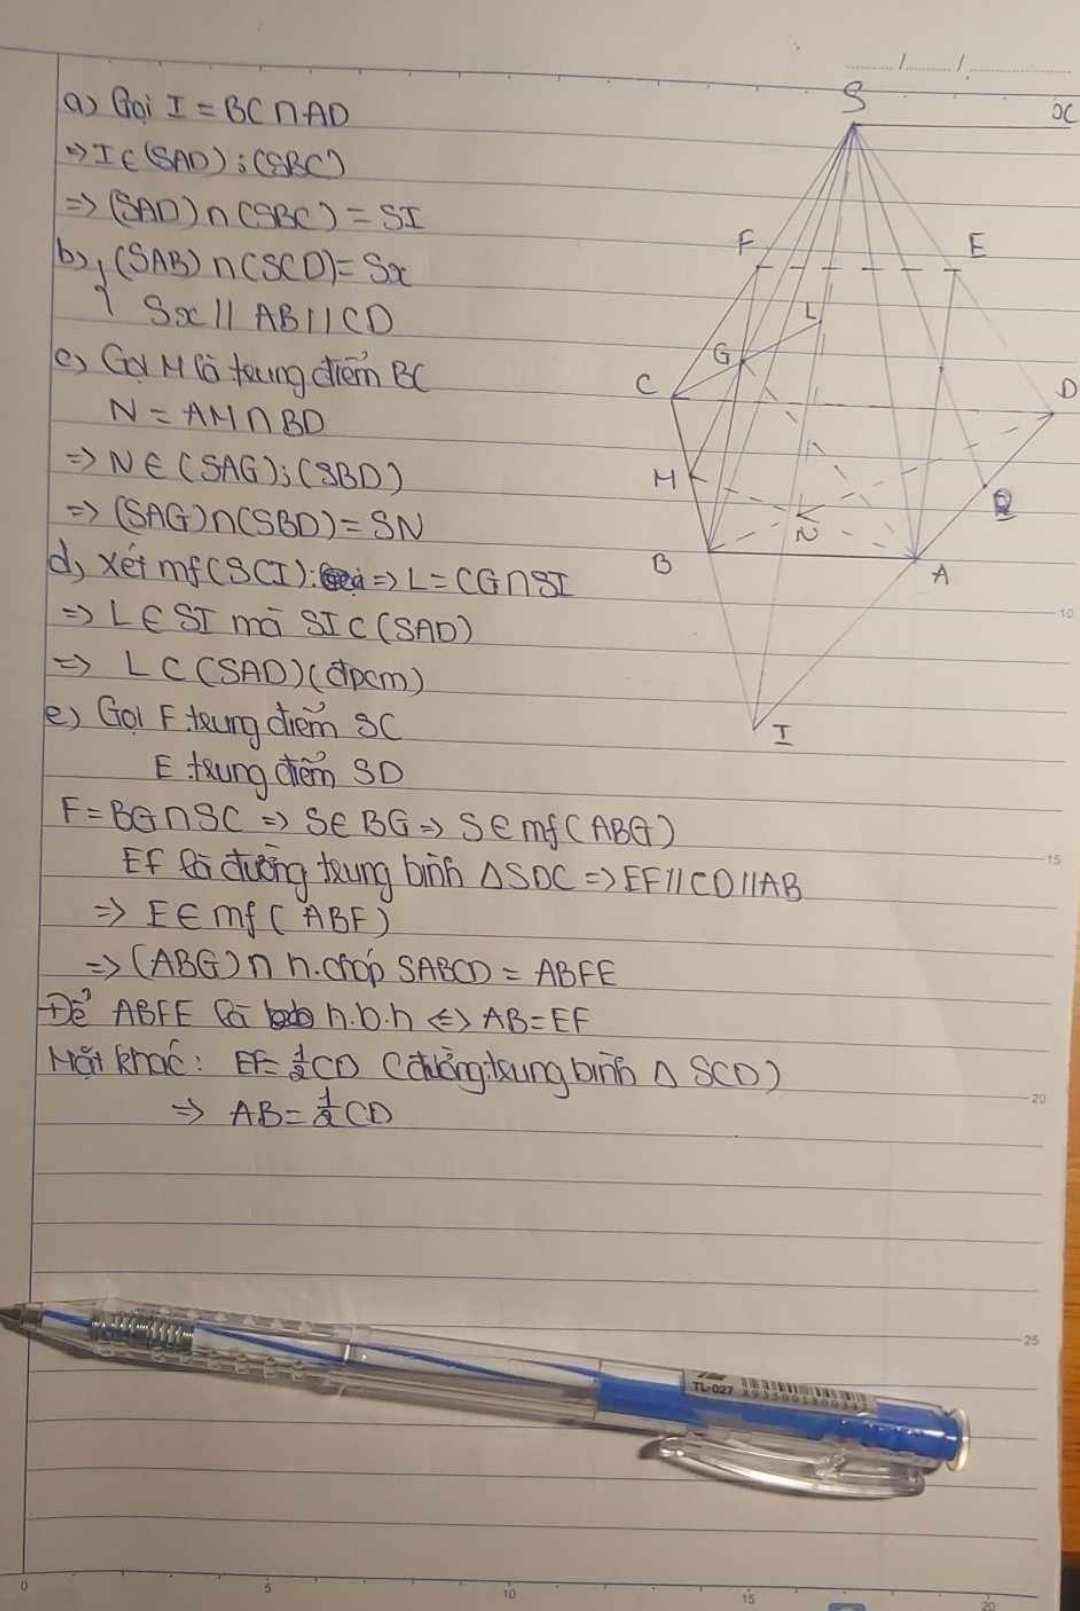 a) Gọi I = BC∩AD
=> I ∈ (SAD) ; (SBC)
=> (SAD)∩(SBC) = SI
b) { (SAB)∩(SCD) = Sx
Sx // AB // CD
c) Gọi M là trung điểm BC
N = AM∩BD
=> N ∈ (SAG) ; (SBD)
=> (SAG)∩(SBD) = SN
d) Xét mf(SCI): => L = CG∩SI
=> L ∈ SI mà SI ⊂ (SAD)
=> L ⊂ (SAD) (đpcm)
e) Gọi F trung điểm SC
E trung điểm SD
F = BG∩SC => S∈ BG => S ∈ mf(ABG)
EF là đường trung bình ΔSDC => EF // CD // AB
=> E ∈ mf( ABF)
=> (ABG)∩ h.chóp SABCD = ABFE
Để ABFE là h.b.h <=> AB = EF
Mặt khác: EF = 1/2 CD (đường trung bình Δ SCD)
=> AB = 1/2 CD
S
x
F
E
L
G
C
D
M
N
B
A
I
TL-027
10
15
20
25
0
5
10
15
20